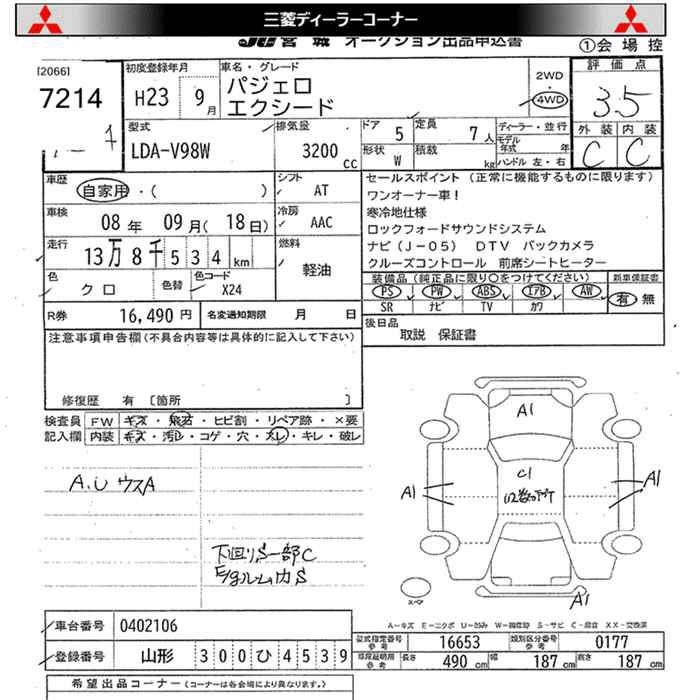 三菱ディーラーコーナー
JU宮城 オークション出品申込書
①会場控
[2066]
7214
初度登録年月
H23 9月
車名・グレード
パジェロ
エクシード
2WD
4WD
評価点
3.5
外装 内装
C C
型式
LDA-V98W
排気量
3200 cc
ドア 5
定員 7人
形状 W
積載 kg
ディーラー・並行
モデル年式 年
ハンドル 左・右
車歴
自家用・( )
シフト AT
車検
08年 09月(18日)
冷房 AAC
走行
13万8千534km
燃料 軽油
色
クロ
色替
色コード
X24
R券 16,490円
名変通知期限 月 日
セールスポイント(正常に機能するものに限ります)
ワンオーナー車!
寒冷地仕様
ロックフォードサウンドシステム
ナビ(J-05) DTV バックカメラ
クルーズコントロール 前席シートヒーター
装備品(純正品に限り○をつけてください)
新車保証書
PS PW ABS エアB AW
有 無
SR ナビ TV カワ
後日品
取説 保証書
注意事項申告欄(不具合内容等は具体的に記入して下さい)
修復歴 有 [箇所 ]
検査員
記入欄
FW キズ・飛石・ヒビ割・リペア跡・×要
内装 キズ・汚レ・コゲ・穴・スレ・キレ・破レ
A.U ウスA
下回りS一部C
E/gルーム内S
A1
C1
A1
A1
A1
A-キズ E-エクボ U-凹み W-補修跡 S-サビ C-腐食 XX-交換済
車台番号 0402106
登録番号 山形 300ひ4539
型式指定番号 参考 16653
類別区分番号 参考 0177
長さ 490cm 幅 187cm 高さ 187cm
希望出品コーナー(コーナーは各会場により異なります。)